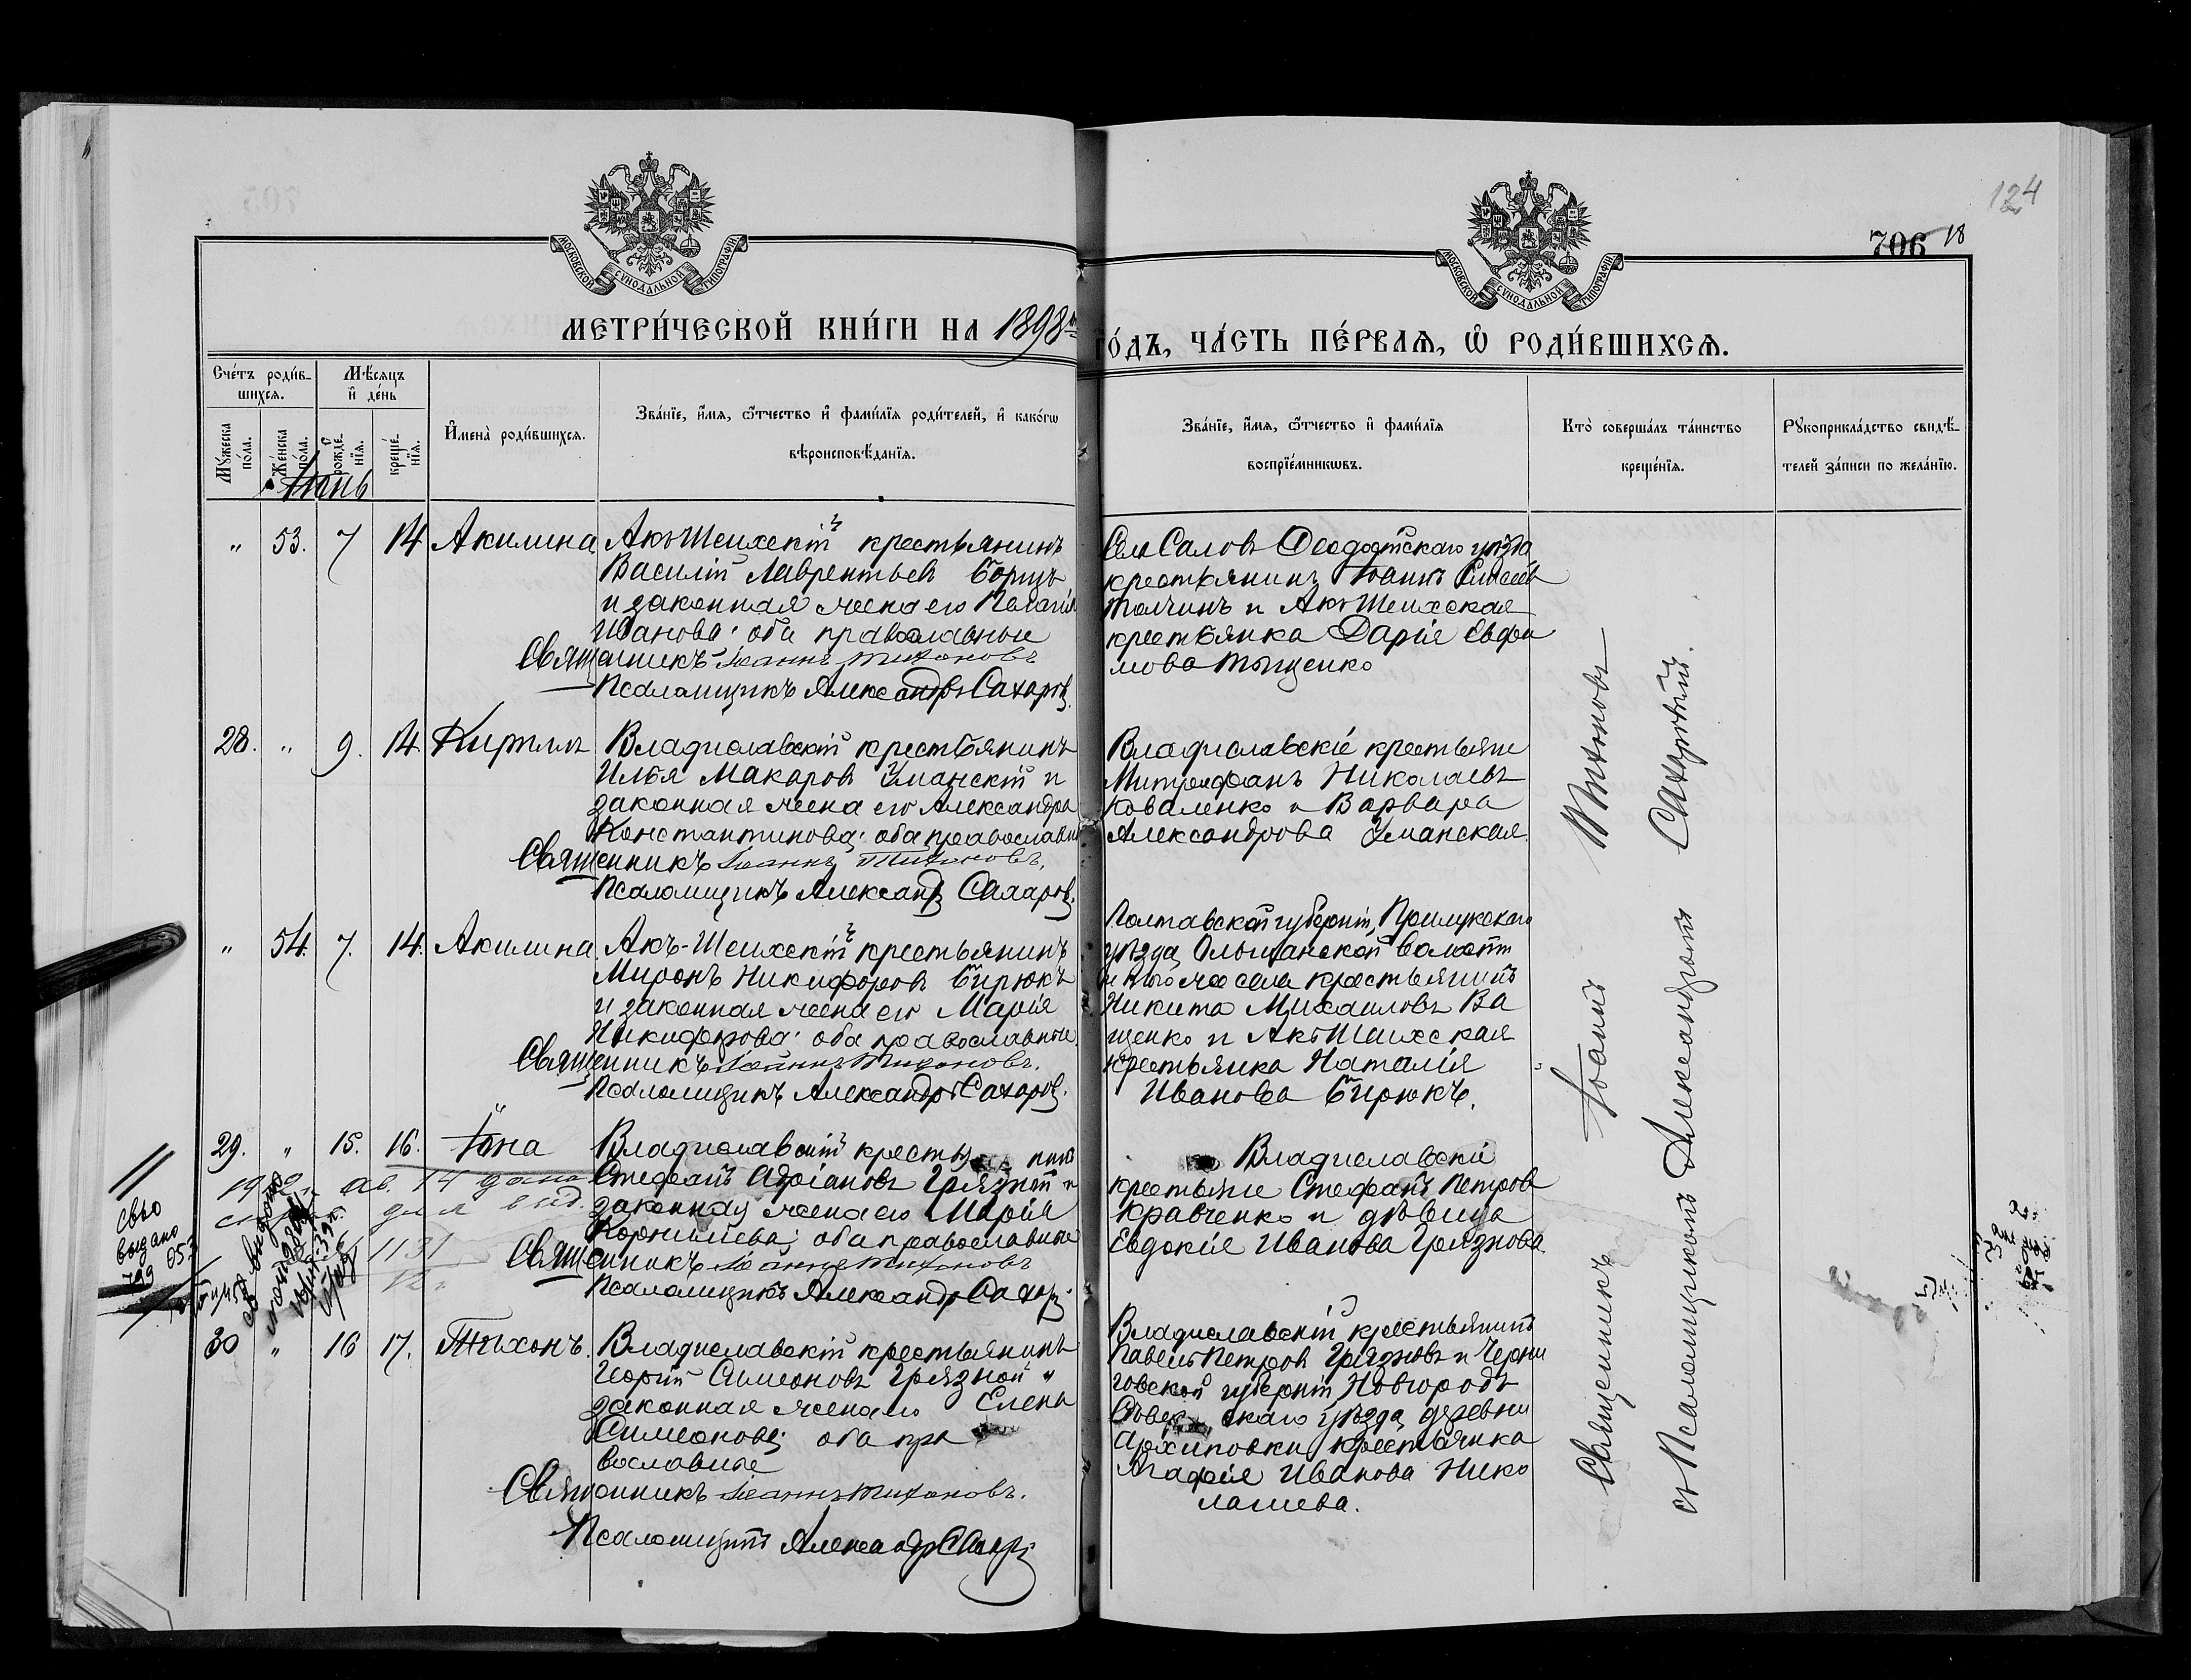 124
706 18
МОСКОВСКОЙ СѴНОДАЛЬНОЙ ТИПОГРАФІИ
МОСКОВСКОЙ СѴНОДАЛЬНОЙ ТИПОГРАФІИ
МЕТРИ́ЧЕСКОЙ КНИ́ГИ НА 1898
ГО́ДЪ, ЧА́СТЬ ПЕ́РВАѦ, Ѽ РОДИ́ВШИХСѦ.
Сче́тъ роди́в-
шихсѧ.
Мѣ́сѧцъ
и҆ де́нь
Мꙋ́жеска
по́ла.
Же́нска
по́ла.
рожде́-
нїѧ.
креще́-
нїѧ.
И҆мена̀ роди́вшихсѧ.
Зва́нїе, и҆́мѧ, ѻ҆́тчество и҆ фами́лїѧ роди́телей, и҆ како́гѡ
вѣроисповѣ́данїѧ.
Зва́нїе, и҆́мѧ, ѻ҆́тчество и҆ фами́лїѧ
воспрїе́мникѡвъ.
Кто̀ соверша́лъ та́инство
креще́нїѧ.
Рꙋкоприкла́дство свидѣ́-
телей за́писи по жела́нїю.
Іюнь
" 53. 7 14 Акилина Акъ-Шеихскій крестьянинъ
Василій Лаврентьевъ Борщъ
и законная жена его Пелагія
Иванова; оба православные
Священникъ Іоаннъ Тихоновъ
Псаломщикъ Александръ Сахаровъ.
Села Салов Ѳеодосійскаго уѣзда
крестьянинъ Іоаннъ
и Акъ-Шеихская
крестьянка Дарія Евфи
мова Тыщенко
28. " 9. 14. Кириллъ Владиславскій крестьянинъ
Илья Макаровъ Уманскій и
законная жена его Александра
Константинова; оба православн
Священникъ Іоаннъ Тихоновъ.
Псаломщикъ Александръ Сахаровъ.
Владиславскіе крестьяне
Митрофанъ Николаевъ
Коваленко и Варвара
Александрова Уманская.
" 54. 7. 14. Акилина Акъ-Шеихскій крестьянинъ
Миронъ Никифоровъ Бирюкъ
и законная жена его Марія
Никифорова; оба православные.
Священникъ Іоаннъ Тихоновъ.
Псаломщикъ Александръ Сахаровъ.
Полтавской губерніи, Прилукскаго
уѣзда, Ольшанской волости
и того же села крестьянинъ
Никита Михаиловъ Ва
щенко и Акъ-Шеихская
крестьянка Наталія
Иванова Бирюкъ.
29. " 15. 16. Іона Владиславскій крестья нинъ
Стефанъ Адріановъ Грязной и
законная жена его Марія
Корнилиева; оба православные
Священникъ Іоаннъ Тихоновъ
Псаломщикъ Александръ Сахаровъ
Владиславскіе
крестьяне Стефанъ Петровъ
Кравченко и дѣвица
Евдокія Иванова Грязнова.
1131
св-во
выдано
30 " 16 17. Тихонъ. Владиславскій крестьянинъ
Георгій Симеоновъ Грязной и
законная жена его Елена
Симеонова; оба пра
вославные
Священникъ Іоаннъ Тихоновъ.
Псаломщикъ Александръ Сахаровъ
Владиславскій крестьянинъ
Павелъ Петровъ Грязновъ и Черни
говской губерніи, Новгородъ
Сѣвер скаго уѣзда деревни
Архиповки крестьянка
Агафія Иванова Нико
лаиева.
Священникъ Іоаннъ Тихоновъ
съ Псаломщикомъ Александромъ Сахаровымъ.